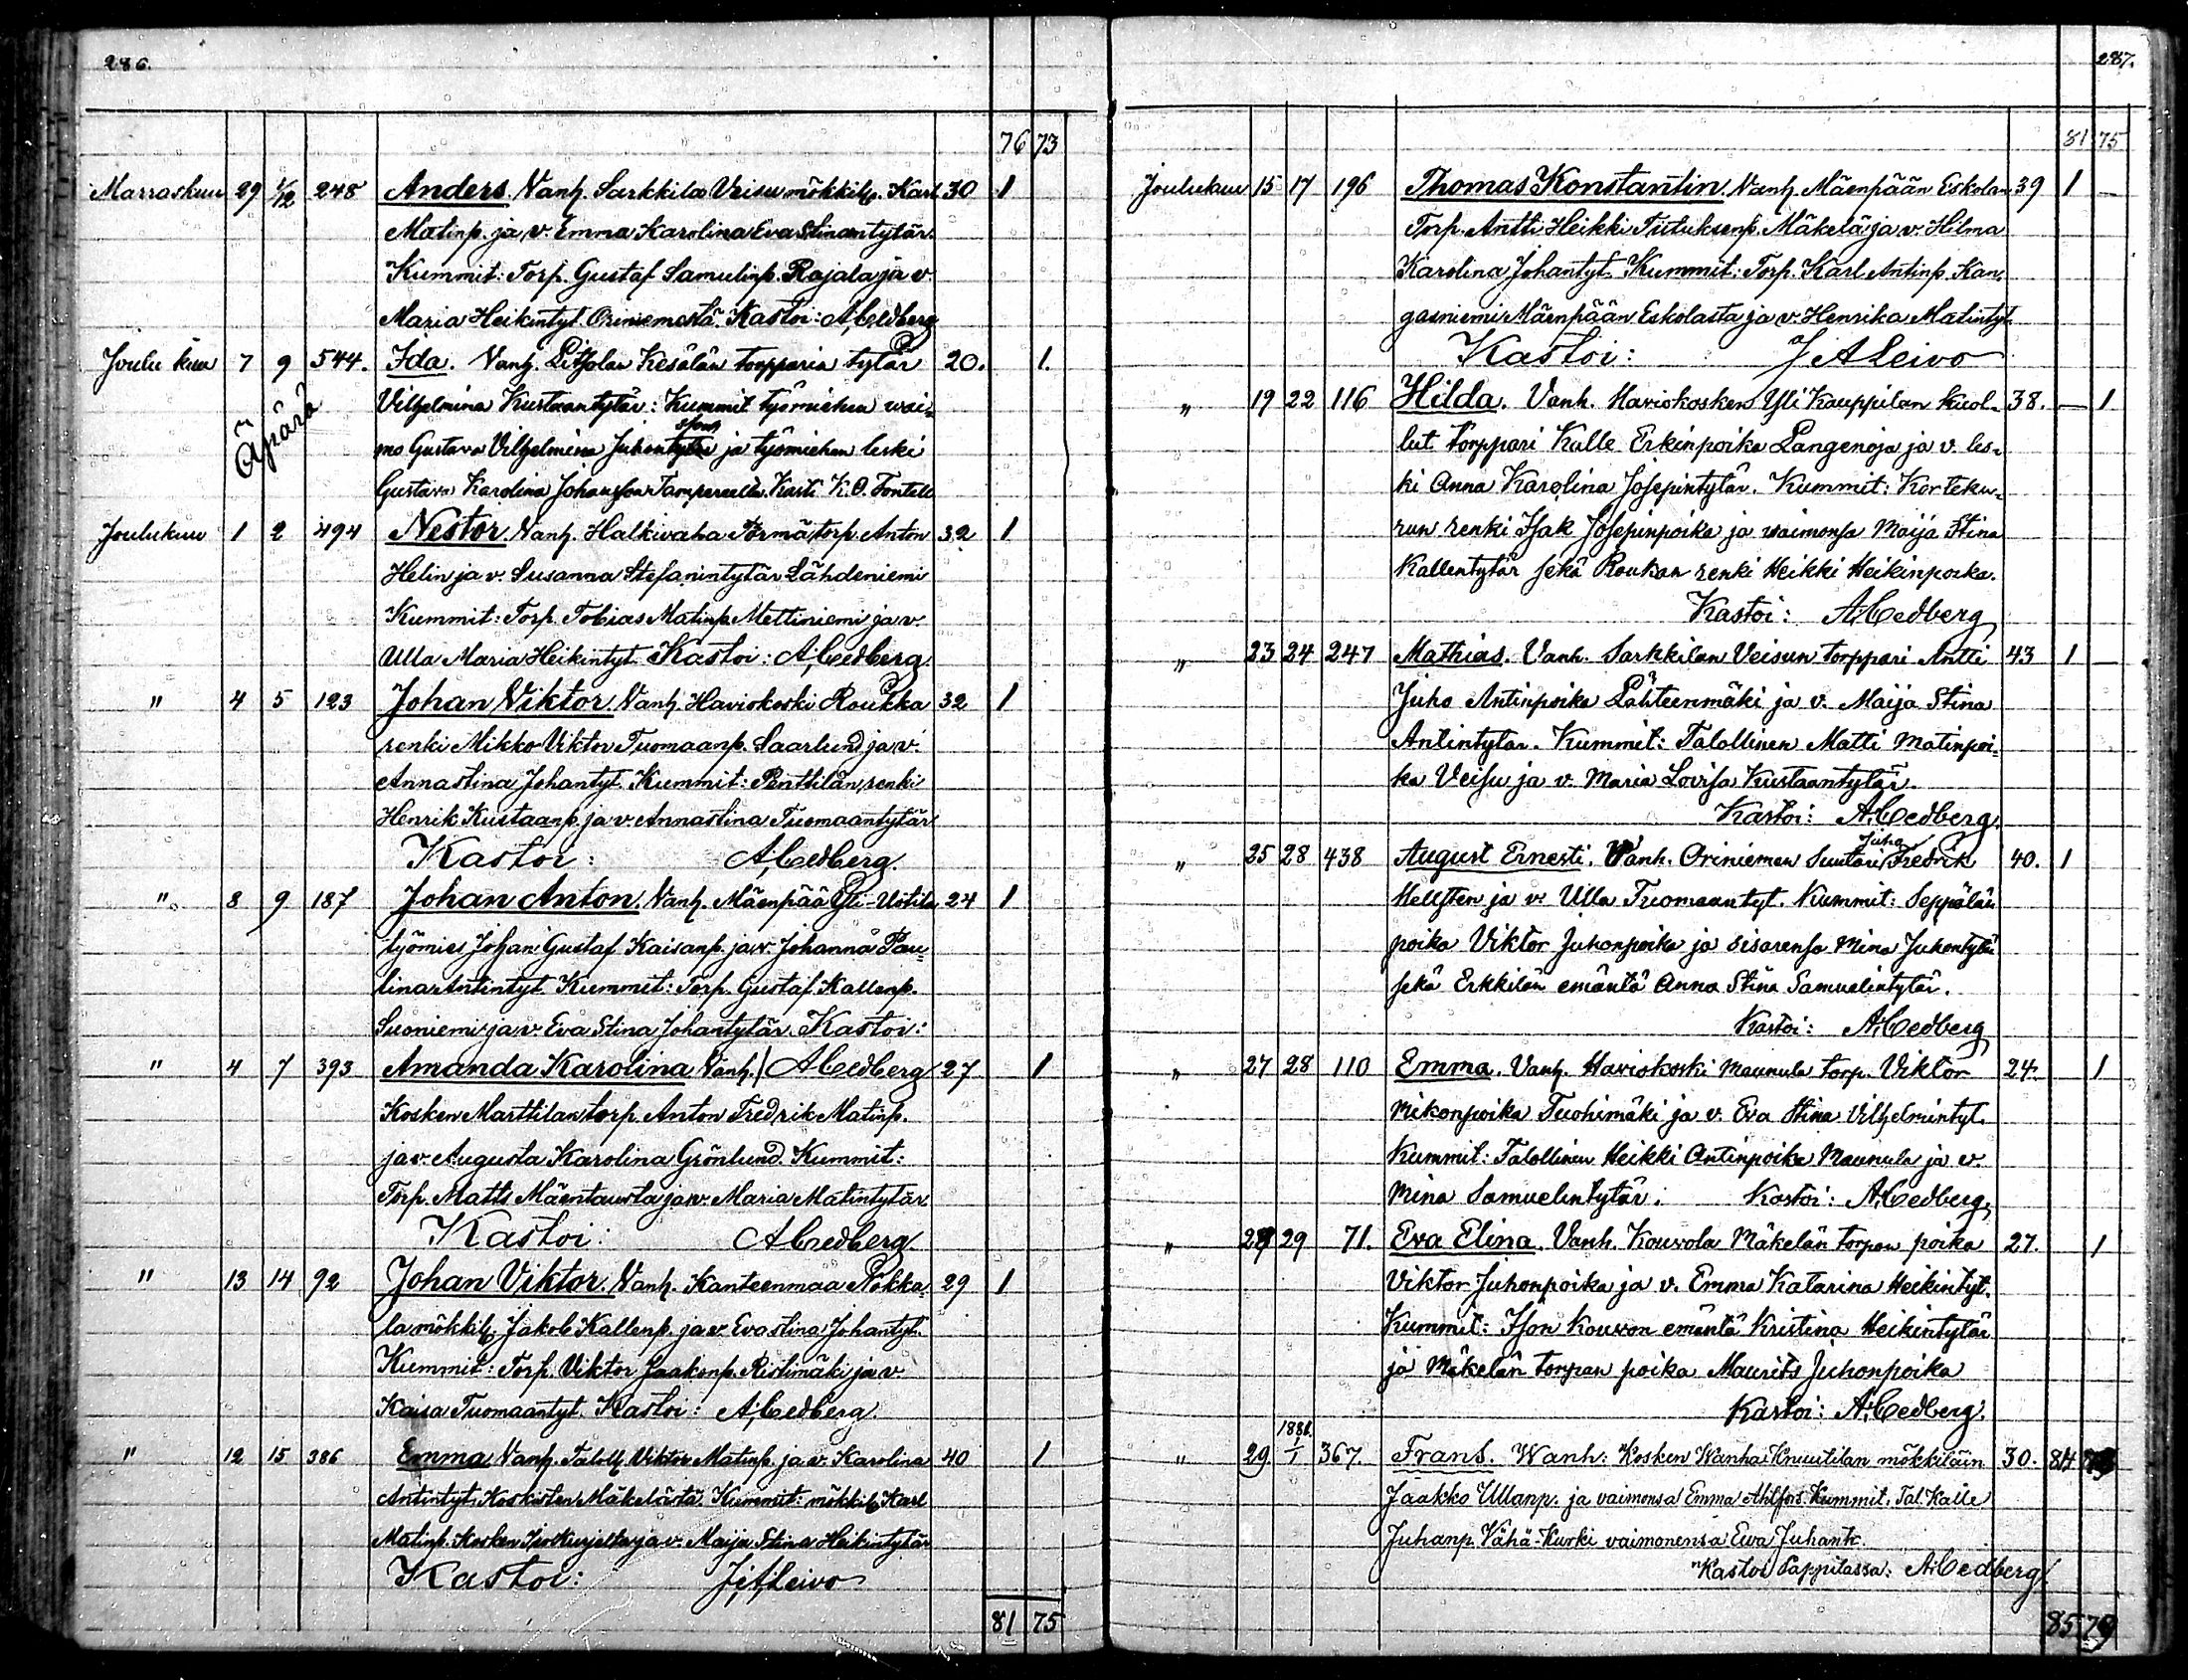 286.
76 73
Marraskuu 29 1/12 248 Anders. Vanh. Sarkkila Veisu mökkil. Karl 30 1
Matinp. ja v. Emma Karolina Eva Stinantytär.
Kummit: Torp. Gustaf Samulinp. Rajala ja v.
Maria Heikintyt. Oriniemestä. Kastoi: A. Cedberg
Joulu kuu 7 9 544. Ida. Vanh. Litsolan Kesälän torpparin tytär 20. 1.
Äpärä
Vilhelmina Kustaantytär: Kummit työmiehen wai-
mo Gustava Vilhelmina Juhontytär ja työmiehen leski
Gustava Karolina Johansson Tampereelta. Kasti K. O. Fontell
Joulukuu 1 2 494 Nestor. Vanh. Halkivaha Törmä, torp. Anton 32 1
Helin ja v. Susanna Stefanintytär Lähdeniemi
Kummit: Torp. Tobias Matinp. Mettiniemi ja v.
Ulla Maria Heikintyt. Kastoi: A. Cedberg
" 4 5 123 Johan Viktor. Vanh. Haviokoski Roukka 32 1
renki Mikko Viktor Tuomaanp. Saarlund ja v.
Annastina Johantyt. Kummit: Penttilän renki
Henrik Kustaanp. ja v. Annastina Tuomaantytär
Kastoi: A. Cedberg.
" 8 9 187 Johan Anton. Vanh. Mäenpää Yli-Uotila 24 1
työmies Johan Gustaf Kaisanp. ja v. Johanna Pau-
lina Antintyt. Kummit: Torp. Gustaf Kallenp.
Suoniemi ja v. Eva Stina Johantytär. Kastoi:
" 4 7 393 Amanda Karolina Vanh. / A Cedberg 27 1
Kosken Marttilan torp. Anton Fredrik Matinp.
ja v. Augusta Karolina Grönlund. Kummit:
Torp. Matts Mäentausta ja v. Maria Matintytär
Kastoi: A Cedberg.
" 13 14 92 Johan Viktor. Vanh. Kanteenmaa Nokka- 29 1
la mökkil. Jakob Kallenp. ja v. Evastina Johantyt.
Kummit: Torp. Viktor Jaakonp. Ristimäki ja v.
Kaisa Tuomaantyt. Kastoi: A. Cedberg.
" 12 15 386 Emma Vanh. Taloll. Viktor Matinp. ja v. Karolina 40 1
Antintyt. Koskisten Mäkelästä. Kummit: mökkil. Karl
Matinp. Kosken Iso Kurjelta ja v. Maija Stina Heikintytär
Kastoi: J. A. Leivo
81 75
287.
81 75
Joulukuu 15 17 196 Thomas Konstantin. Vanh. Mäenpään Eskolan 39 1 —
Torp. Antti Heikki Tiituksenp. Mäkelä ja v. Hilma
Karolina Johantyt. Kummit: Torp. Karl Antinp. Kan-
gasniemi Mäenpään Eskolasta ja v. Henrika Matintyt.
Kastoi: J A Leivo
" 19 22 116 Hilda. Vanh. Haviokosken Yli Kauppilan kuol- 38. — 1
lut torppari Kalle Erkinpoika Langenoja ja v. les-
ki Anna Karolina Josepintytär. Kummit: Korteku-
run renki Isak Josepinpoika ja waimonsa Maija Stina
Kallentytär sekä Roukan renki Heikki Heikinpoika.
Kastoi: A. Cedberg
" 23 24 247 Mathias. Vanh. Sarkkilan Veisun torppari Antti 43 1 —
Juho Antinpoika Lähteenmäki ja v. Maija Stina
Antintytar. Kummit: Talollinen Matti Matinpoi-
ka Veisu ja v. Maria Lovisa Kustaantytär.
Kastoi: A. Cedberg.
Juha
" 25 28 438 August Ernesti. Vanh. Oriniemen Suutari Fredrik 40. 1
Hellsten ja v. Ulla Tuomaantyt. Kummit: Seppälän
poika Viktor Juhonpoika ja sisarensa Mina Juhontytär
sekä Erkkilän emäntä Anna Stina Samuelintytär.
Kastoi: A. Cedberg
" 27 28 110 Emma. Vanh. Haviokoski Maunula torp. Viktor 24. 1
Mikonpoika Tuohimäki ja v. Eva Stina Vilhelmintyt.
Kummit: Talollinen Heikki Antinpoika Maunula ja v.
Mina Samuelintytär. Kastoi: A. Cedberg.
" 28 29 71. Eva Elina. Vanh. Kouvola Mäkelän torpan poika 27. 1
Viktor Juhonpoika ja v. Emma Katarina Heikintyt.
Kummit: Ison Kouvon emäntä Kristina Heikintytär
ja Mäkelän torpan poika Maurits Juhonpoika
Kastoi: A. Cedberg.
1886.
" 29 1/1 367. Frans. Wanh: Kosken Wanha Knuutilan mökkiläin 30. 84
Jaakko Ullanp. ja vaimonsa Emma Ahlfors. Kummit. Tal. Kalle
Juhanp. Vähä-Kurki vaimonensa Ewa Juhant.
Kastoi Pappilassa: A. Cedberg.
85 79